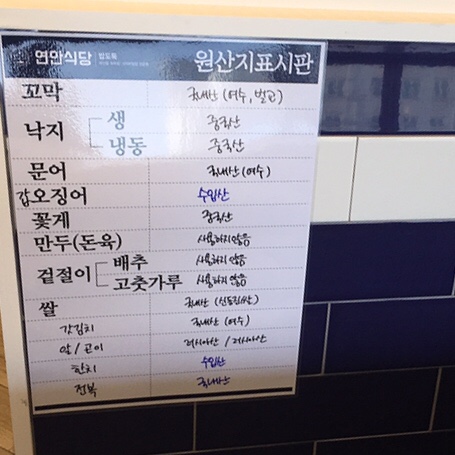 연안식당 원산지표시판
꼬막 국내산 (여수, 벌교)
낙지 생 중국산
냉동 중국산
문어 국내산 (여수)
갑오징어 수입산
꽃게 중국산
만두(돈육) 사용하지않음
겉절이 배추 사용하지않음
고춧가루 사용하지않음
쌀 국내산
갓김치 국내산 (여수)
알 / 곤이 러시아산 / 러시아산
한치 수입산
전복 국내산